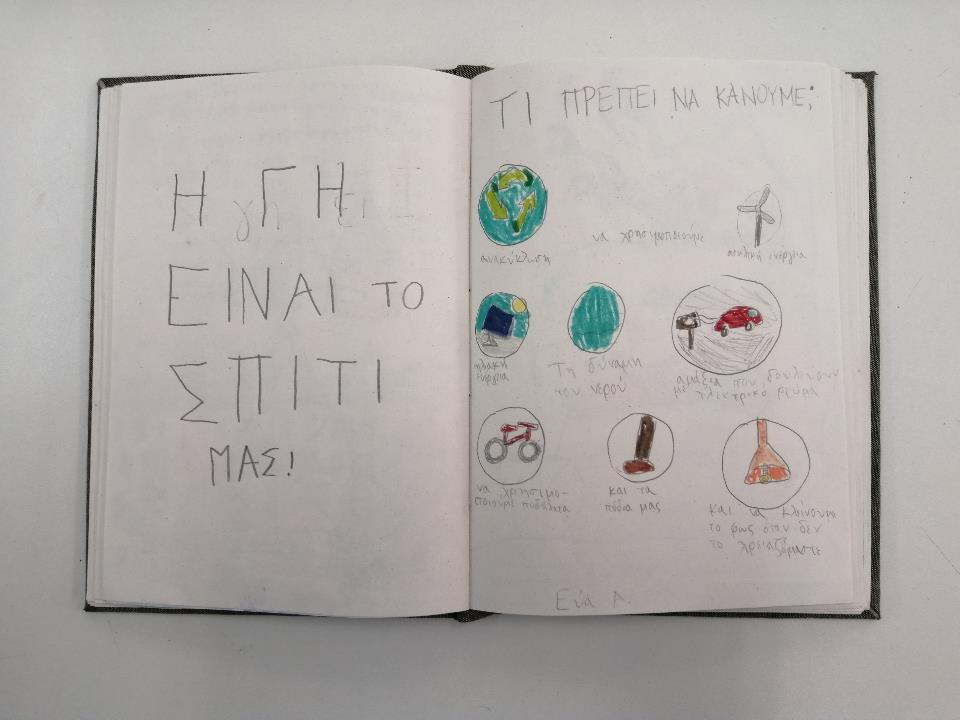 Η ΓΗ
ΕΙΝΑΙ ΤΟ
ΣΠΙΤΙ
ΜΑΣ!
ΤΙ ΠΡΕΠΕΙ ΝΑ ΚΑΝΟΥΜΕ;
ανακύκλωση
να χρησιμοποιούμε
αιολική ενέργεια
ηλιακή
ενέργεια
Τη δύναμη
του νερού
αμάξια που δουλεύουν
με ηλεκτρικό ρεύμα
να χρησιμο-
ποιούμε ποδήλατα
και τα
πόδια μας
και να κλείνουμε
το φως όταν δεν
το χρειαζόμαστε
Εύα Α.